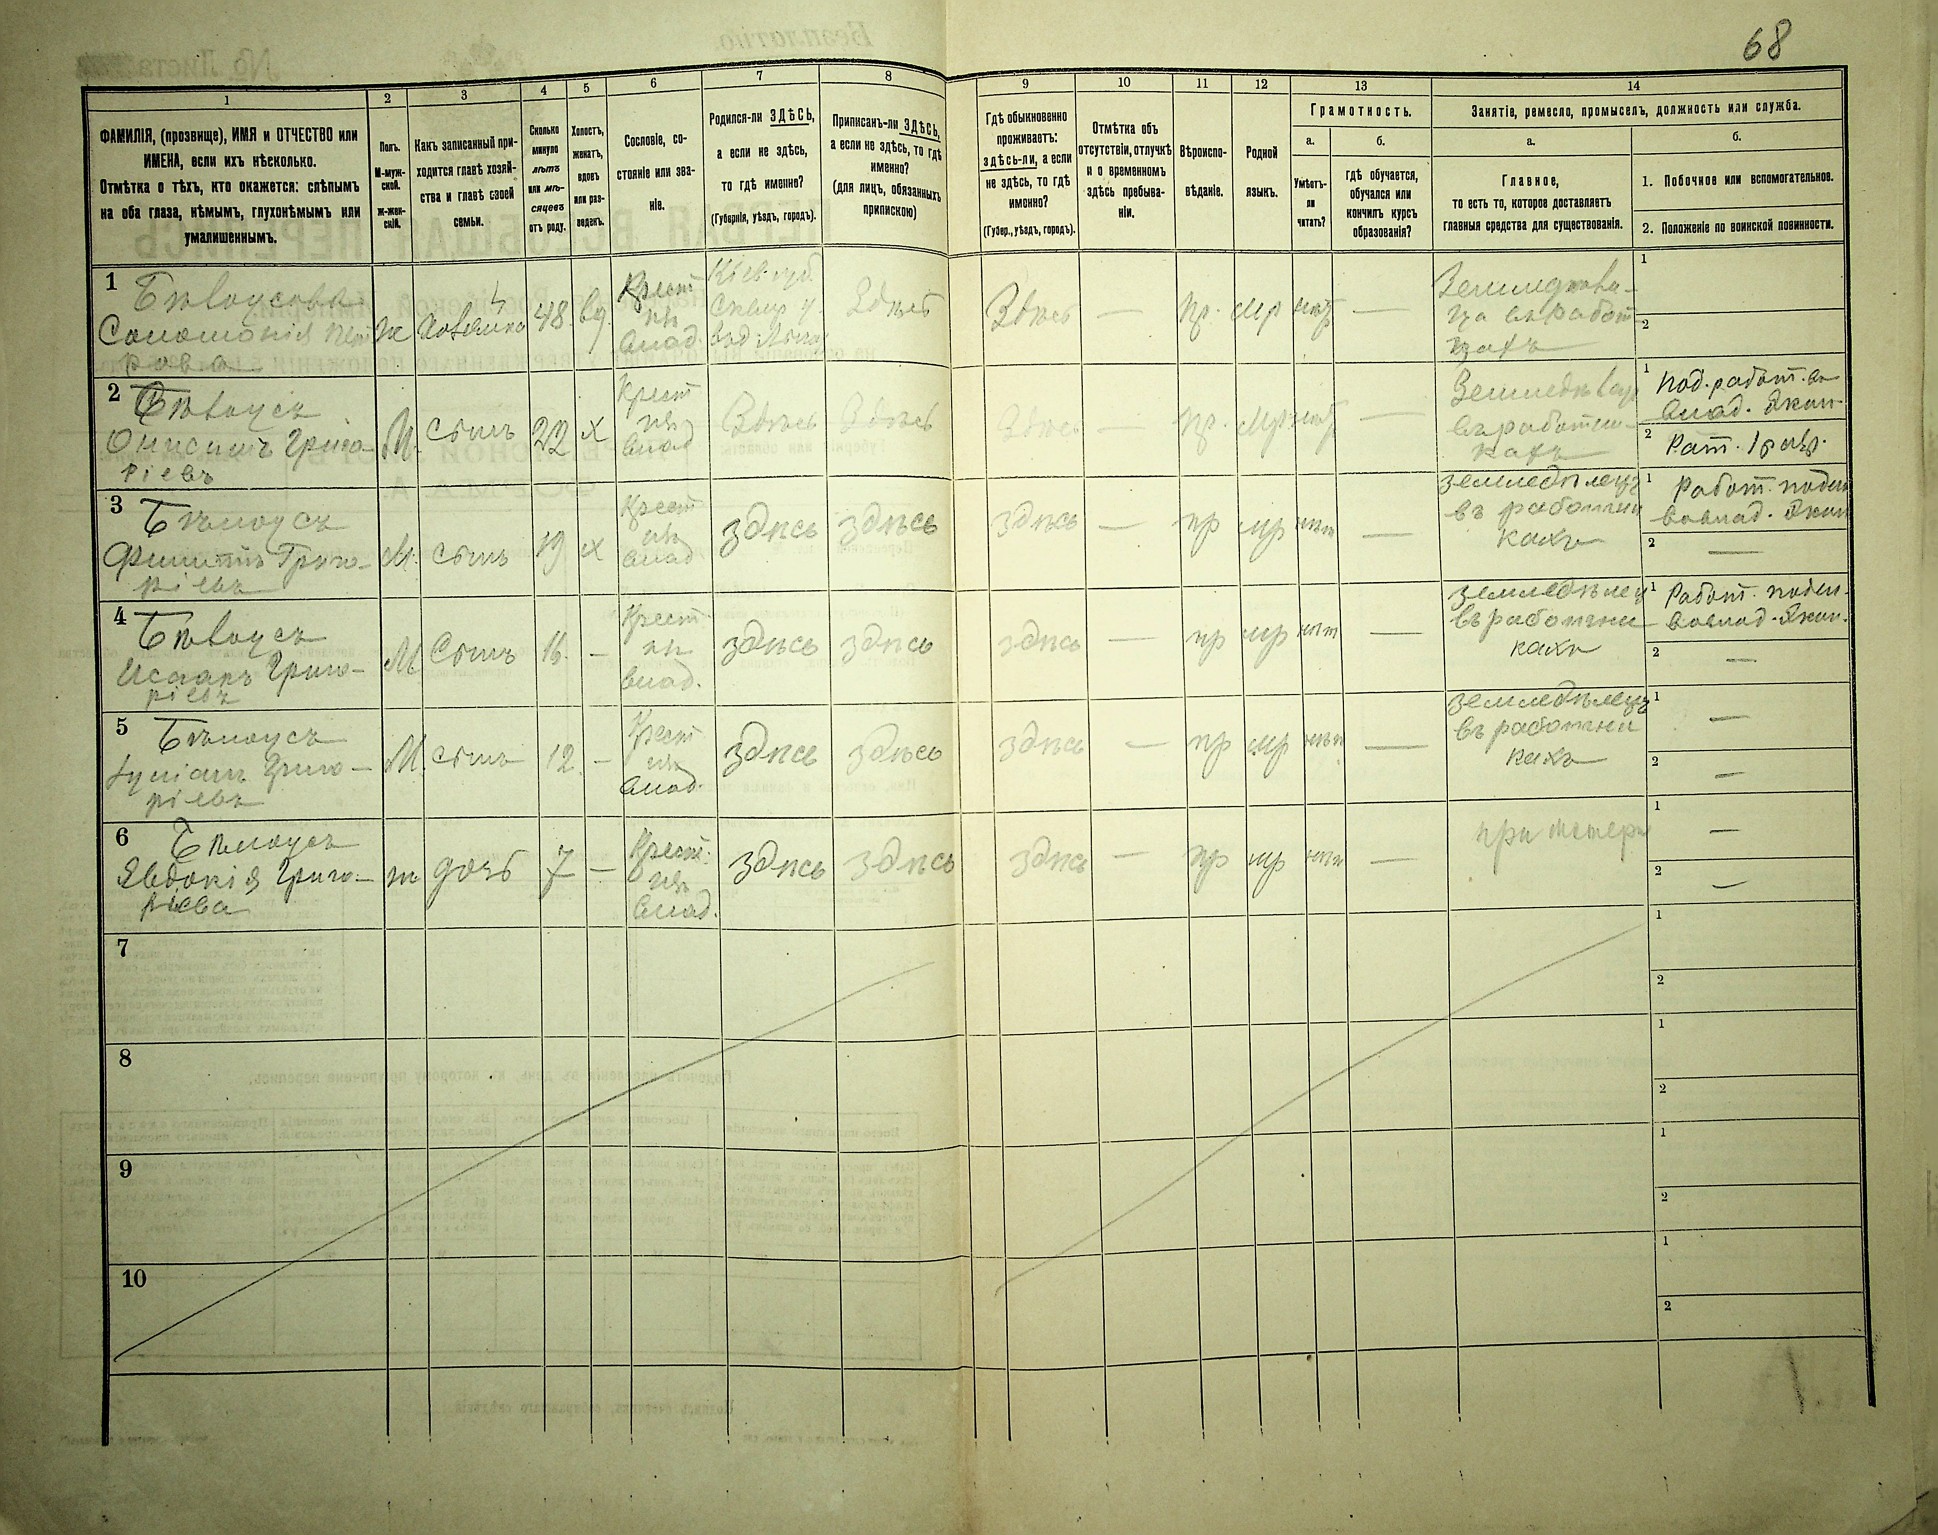 68
1
2
3
4
5
6
7
8
9
10
11
12
13
14
ФАМИЛІЯ, (прозвище), ИМЯ и ОТЧЕСТВО или
ИМЕНА, если ихъ нѣсколько.
Отмѣтка о тѣхъ, кто окажется: слѣпымъ
на оба глаза, нѣмымъ, глухонѣмымъ или
умалишеннымъ.
Полъ.
М-муж-
ской.
Ж-жен-
скій.
Какъ записанный при-
ходится главѣ хозяй-
ства и главѣ своей
семьи.
Сколько
минуло
лѣтъ
или мѣ-
сяцевъ
отъ роду.
Холостъ,
женатъ,
вдовъ
или раз-
веденъ.
Сословіе, со-
стояніе или зва-
ніе.
Родился-ли ЗДѢСЬ,
а если не здѣсь,
то гдѣ именно?
(Губернія, уѣздъ, городъ).
Приписанъ-ли ЗДѢСЬ,
а если не здѣсь, то гдѣ
именно?
(для лицъ, обязанныхъ
припискою)
Гдѣ обыкновенно
проживаетъ:
здѣсь-ли, а если
не здѣсь, то гдѣ
именно?
(Губер., уѣздъ, городъ).
Отмѣтка объ
отсутствіи, отлучкѣ
и о временномъ
здѣсь пребыва-
ніи.
Вѣроиспо-
вѣданіе.
Родной
языкъ.
Грамотность.
а.
Умѣетъ-
ли
читать?
б.
гдѣ обучается,
обучался или
кончилъ курсъ
образованія?
Занятіе, ремесло, промыселъ, должность или служба.
а.
Главное,
то есть то, которое доставляетъ
главныя средства для существованія.
б.
1. Побочное или вспомогательное.
2. Положеніе по воинской повинности.
1
Бѣлоусова
Соломонія
ж
хозяйка
48
вд.
Крест
изъ
влад.
Кіев. губ.
Сквир. у.
Здѣсь
Здѣсь
—
пр.
мр
нѣт
—
1
2
2
Бѣлоусъ
Онисимъ Григо-
ріевъ
М.
сынъ
22
х
Крест
изъ
влад
Здѣсь
Здѣсь
Здѣсь
—
пр.
мр
нѣт
—
въ работни-
кахъ
1
Под. работ. въ
влад. Экон.
2
Рат. 1 разр.
3
Бѣлоусъ
Филиппъ Григо-
ріевъ
М.
сынъ
19
х
Крест
изъ
влад
здѣсь
здѣсь
здѣсь
—
пр
мр
нѣт
—
земледѣлецъ
въ работни
кахъ
1
Работ. поден
вовлад. Экон
2
—
4
Бѣлоусъ
Исаакъ Григо-
ріевъ
М
Сынъ
16.
—
Крест
изъ
влад.
здѣсь
здѣсь
здѣсь
—
пр
мр
нѣт
—
земледѣлец
въ работни
кахъ
1
Работ. поден.
вовлад. Экон.
2
—
5
Бѣлоусъ
Григо-
ріевъ
М.
сынъ
12
—
Крест
изъ
влад.
здѣсь
здѣсь
здѣсь
—
пр
мр
нѣт
—
земледѣлецъ
въ работни
кахъ
1
—
2
—
6
Бѣлоусъ
Явдокія Григо-
ріева
ж
дочь
7
—
Крест.
изъ
влад.
здѣсь
здѣсь
здѣсь
—
пр
мр
нѣт
—
при матери
1
—
2
—
7
1
2
8
1
2
9
1
2
10
1
2